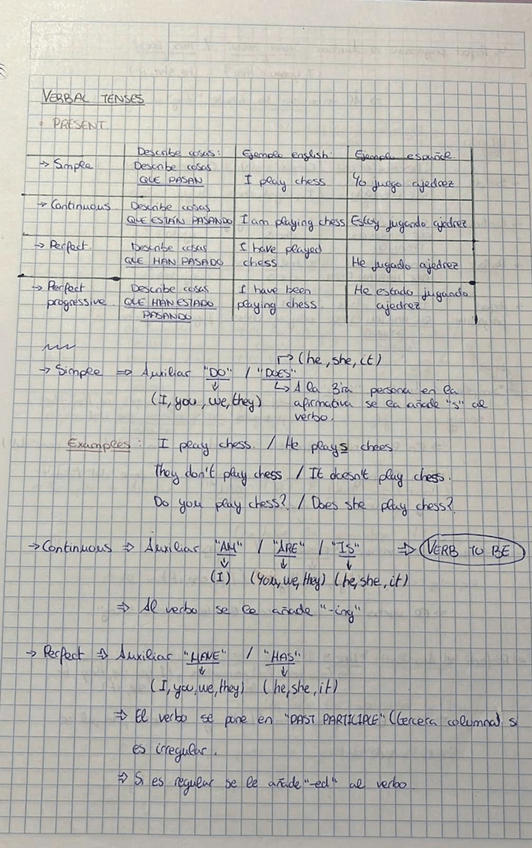 VERBAL TENSES
• PRESENT
Describe cosas: Ejemplo english: Ejemplo español.
→ Simple Describe cosas QUE PASAN I play chess Yo juego ajedrez
→ Continuous Describe cosas QUE ESTÁN PASANDO I am playing chess Estoy jugando ajedrez
→ Perfect Describe cosas QUE HAN PASADO I have played chess He jugado ajedrez
→ Perfect progressive Describe cosas QUE HAN ESTADO PASANDO I have been playing chess He estado jugando ajedrez
(he, she, it)
→ Simple ⇒ Auxiliar "DO" / "DOES"
(I, you, we, they) → A la 3ra persona en la
afirmativa se la añade "s" al
verbo.
Examples: I play chess. / He plays chees
They don't play chess / It doesn't play chess.
Do you play chess? / Does she play chess?
→ Continuous ⇒ Auxiliar "AM" / "ARE" / "IS" ⇒ VERB TO BE
(I) (You, we, they) (he, she, it)
⇒ Al verbo se le añade "-ing"
→ Perfect ⇒ Auxiliar "HAVE" / "HAS"
(I, you, we, they) (he, she, it)
⇒ El verbo se pone en "PAST PARTICIPLE" (tercera columna) s
es irregular.
⇒ Si es regular se le añade "-ed" al verbo.